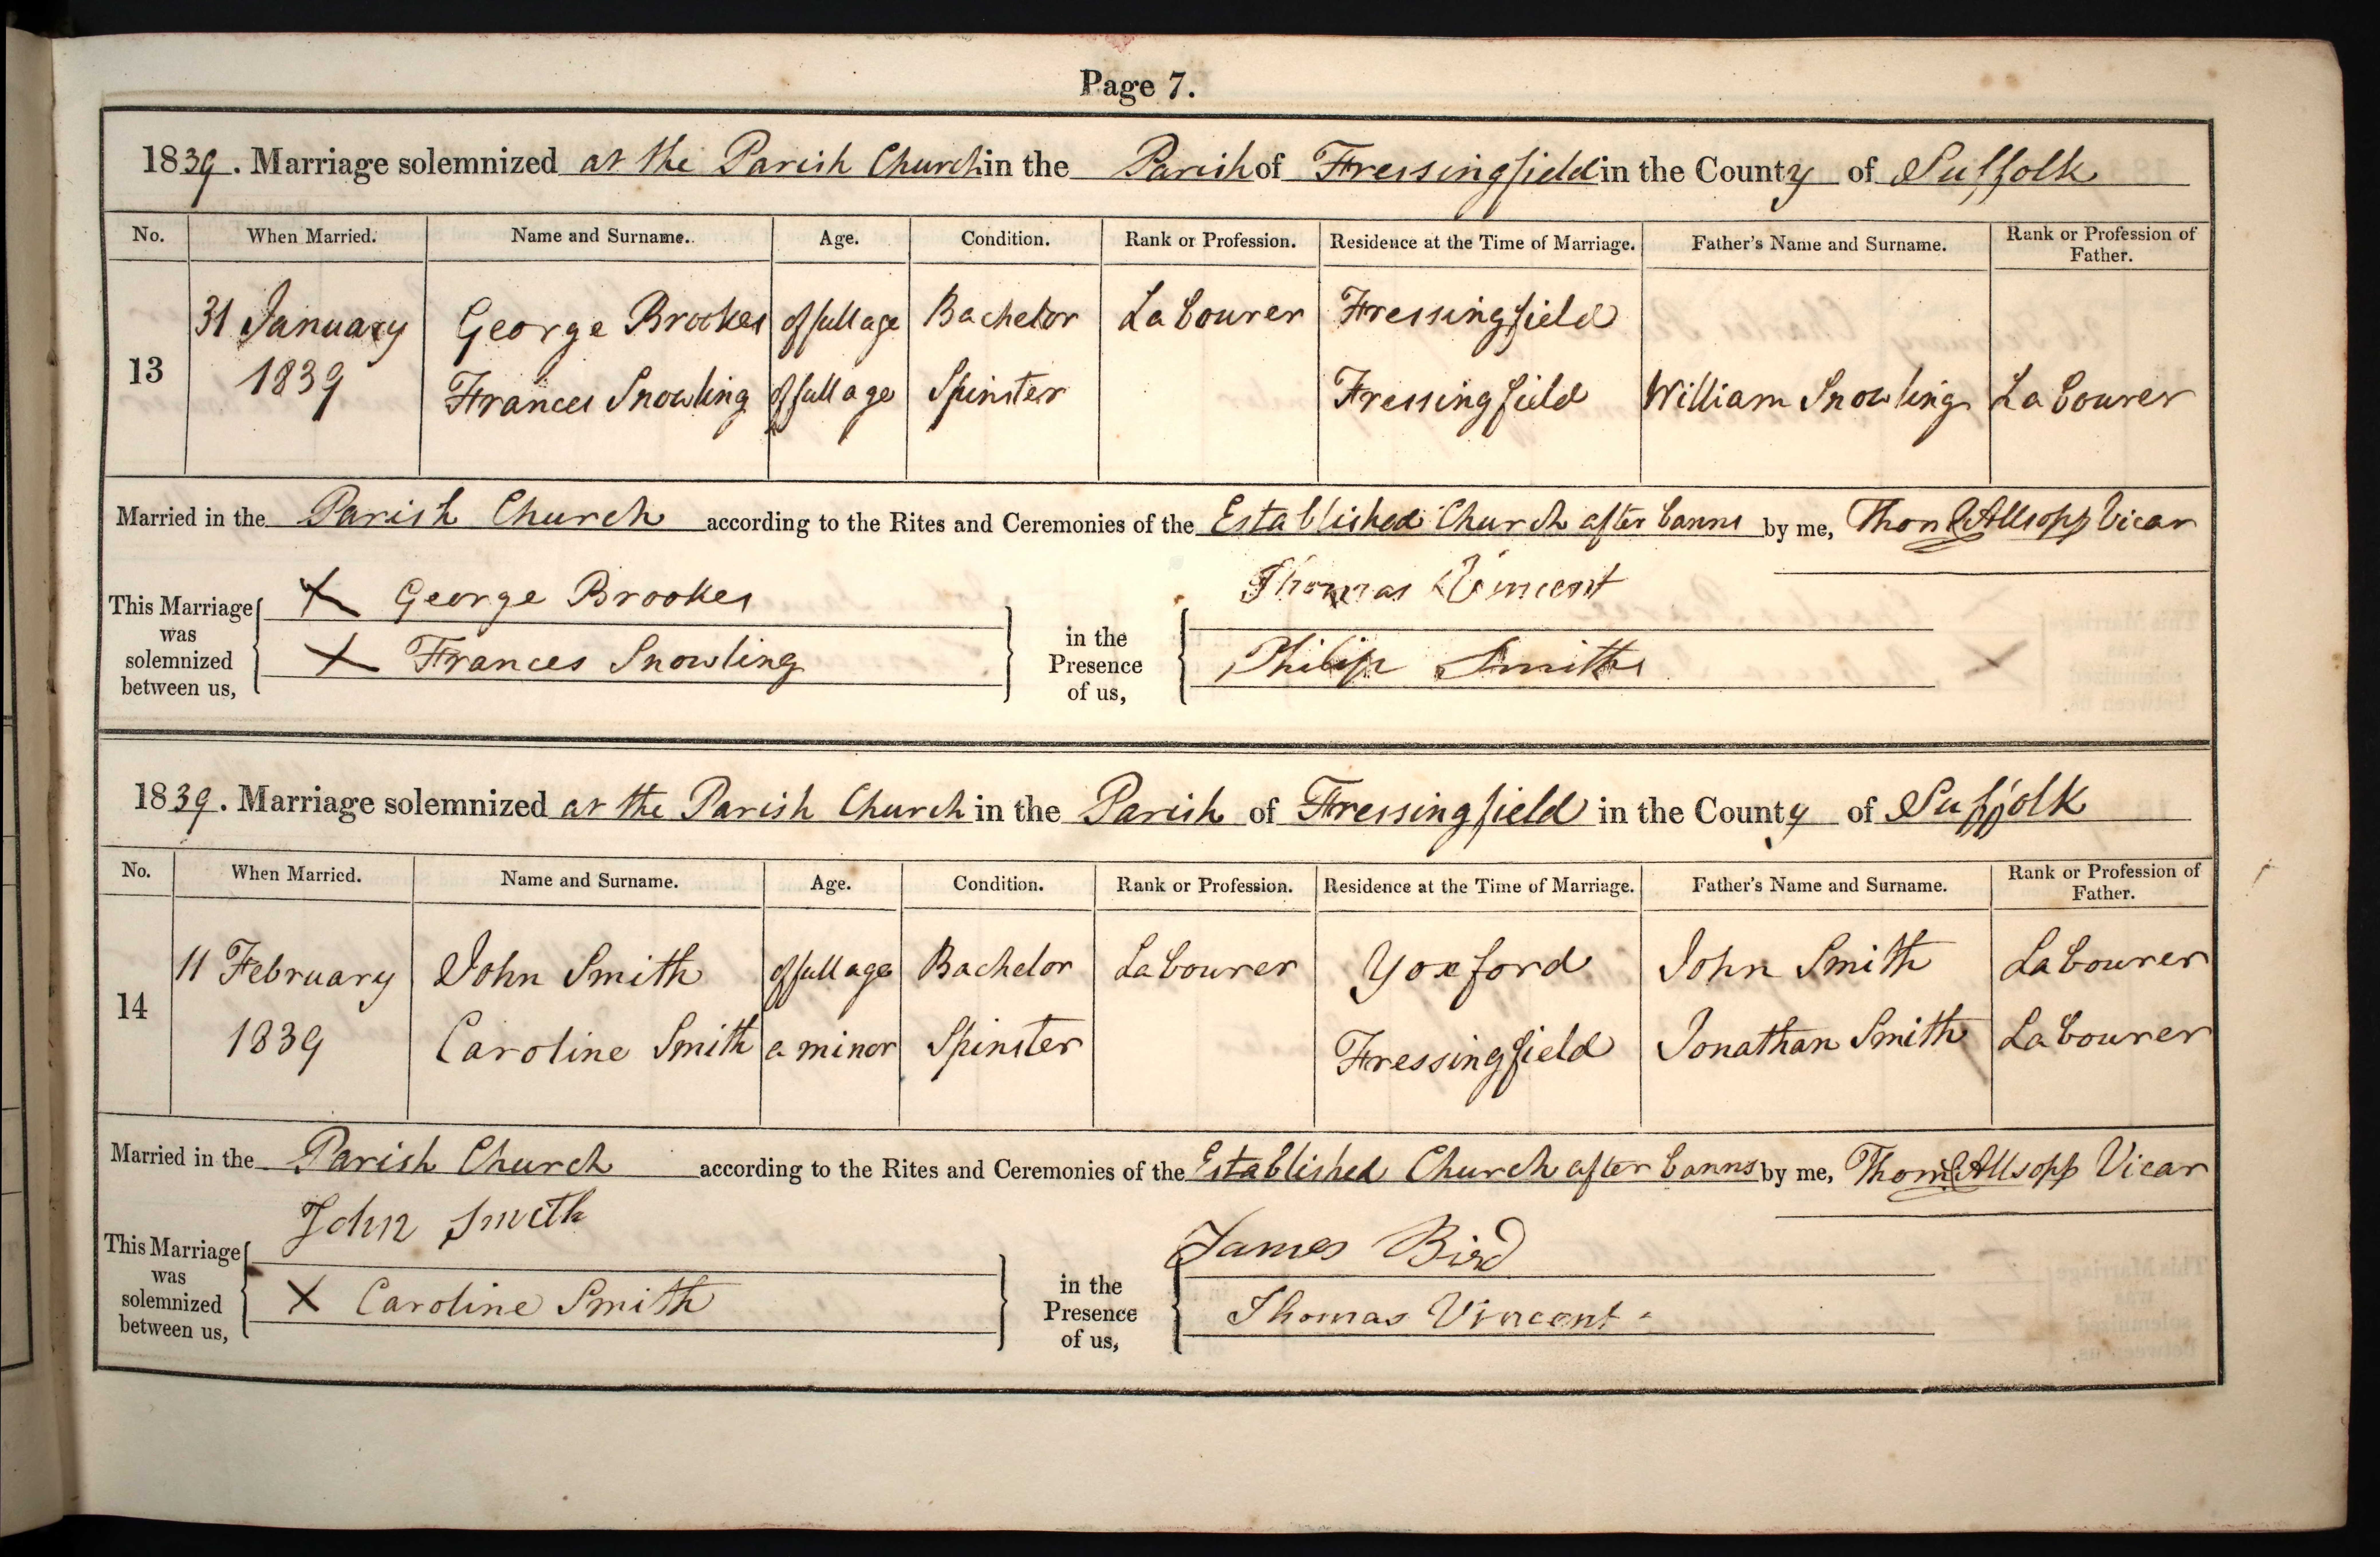 Page 7.
1839. Marriage solemnized at the Parish Church in the Parish of Fressingfield in the County of Suffolk
No. When Married. Name and Surname. Age. Condition. Rank or Profession. Residence at the Time of Marriage. Father's Name and Surname. Rank or Profession of Father.
31 January George Brookes of full age Bachelor Labourer Fressingfield
13 1839 Frances Snowling of full age Spinster Fressingfield William Snowling Labourer
Married in the Parish Church according to the Rites and Ceremonies of the Established Church after banns by me, Allsopp Vicar
This Marriage was solemnized between us, X George Brookes
X Frances Snowling
in the Presence of us, Thomas Vincent
Philip Smith
1839. Marriage solemnized at the Parish Church in the Parish of Fressingfield in the County of Suffolk
No. When Married. Name and Surname. Age. Condition. Rank or Profession. Residence at the Time of Marriage. Father's Name and Surname. Rank or Profession of Father.
11 February John Smith of full age Bachelor Labourer Yoxford John Smith Labourer
14 1839 Caroline Smith a minor Spinster Fressingfield Jonathan Smith Labourer
Married in the Parish Church according to the Rites and Ceremonies of the Established Church after banns by me, Allsopp Vicar
This Marriage was solemnized between us, John Smith
X Caroline Smith
in the Presence of us, James Bird
Thomas Vincent